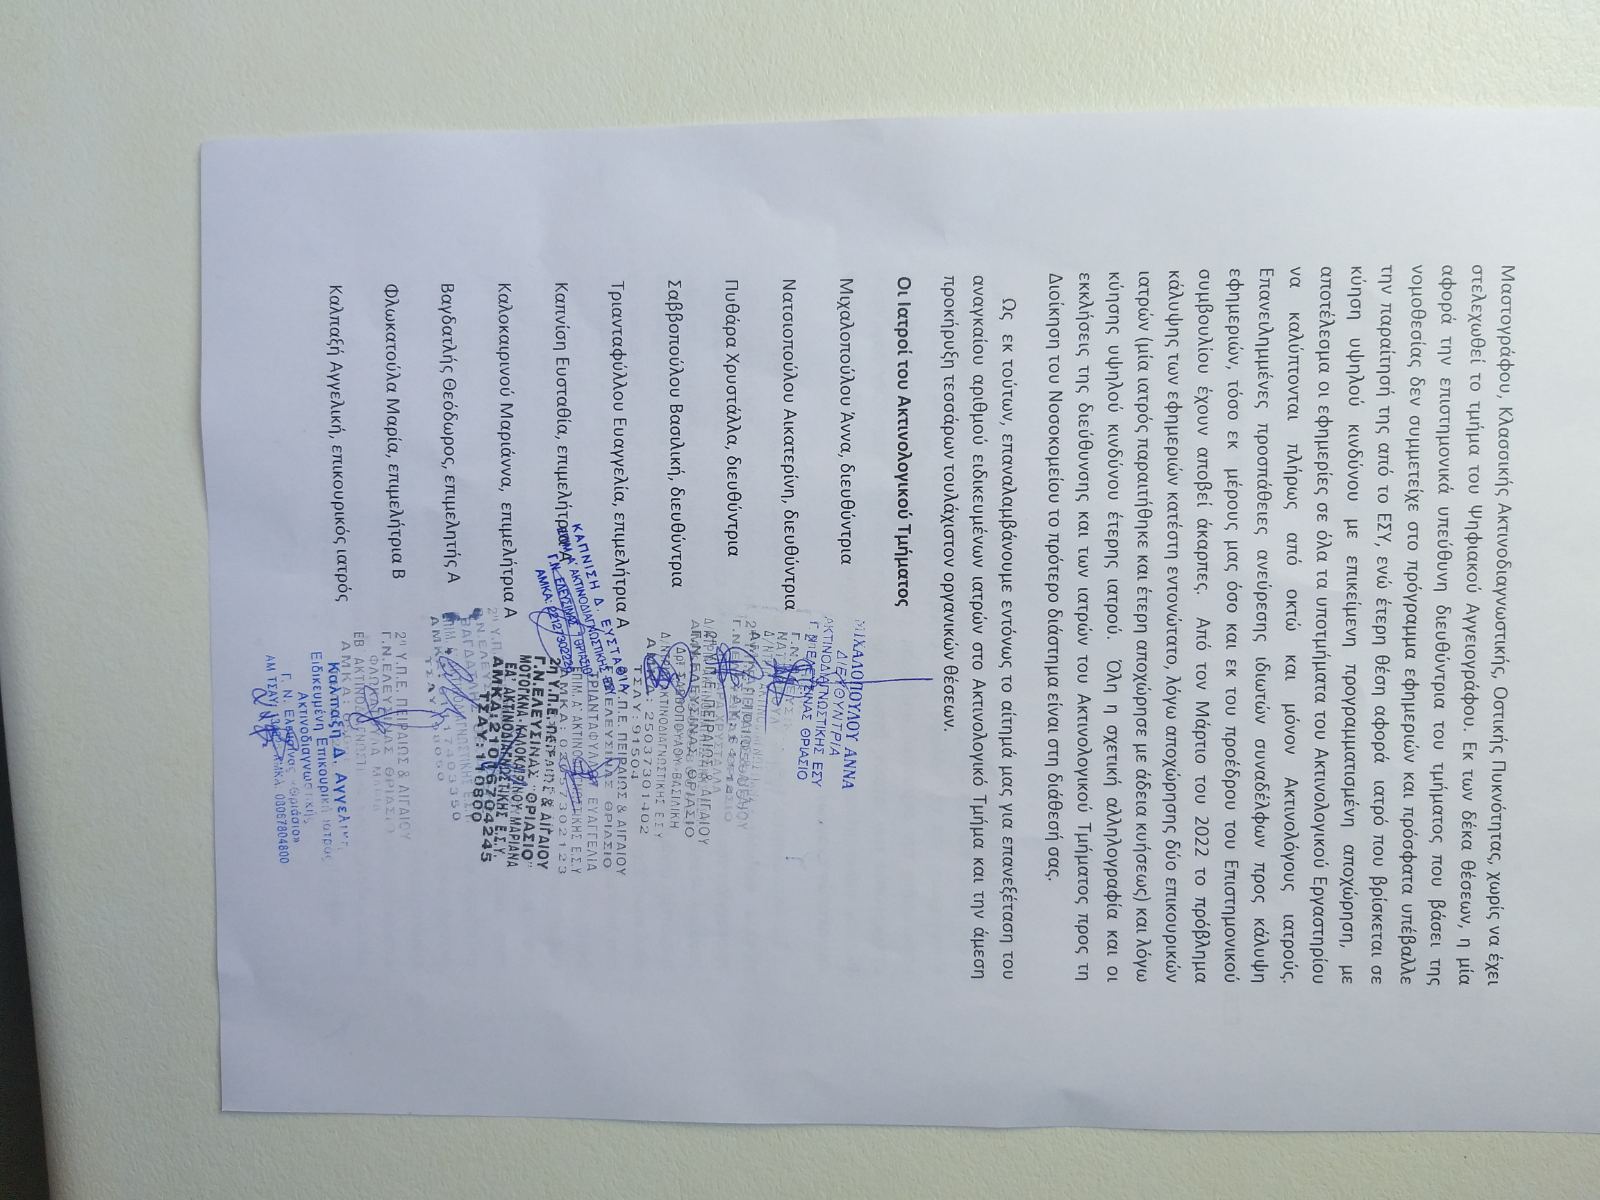 Μαστογράφου, Κλασσικής Ακτινοδιαγνωστικής, Οστικής Πυκνότητας, χωρίς να έχει
στελεχωθεί το τμήμα του Ψηφιακού Αγγειογράφου. Εκ των δέκα θέσεων, η μία
αφορά την επιστημονικά υπεύθυνη διευθύντρια του τμήματος που βάσει της
νομοθεσίας δεν συμμετείχε στο πρόγραμμα εφημεριών και πρόσφατα υπέβαλλε
την παραίτησή της από το ΕΣΥ, ενώ έτερη θέση αφορά ιατρό που βρίσκεται σε
κύηση υψηλού κινδύνου με επικείμενη προγραμματισμένη αποχώρηση, με
αποτέλεσμα οι εφημερίες σε όλα τα υποτμήματα του Ακτινολογικού Εργαστηρίου
να καλύπτονται πλήρως από οκτώ και μόνον Ακτινολόγους ιατρούς.
Επανειλημμένες προσπάθειες ανεύρεσης ιδιωτών συναδέλφων προς κάλυψη
εφημεριών, τόσο εκ μέρους μας όσο και εκ του προέδρου του Επιστημονικού
συμβουλίου έχουν αποβεί άκαρπες. Από τον Μάρτιο του 2022 το πρόβλημα
κάλυψης των εφημεριών κατέστη εντονώτατο, λόγω αποχώρησης δύο επικουρικών
ιατρών (μία ιατρός παραιτήθηκε και έτερη αποχώρησε με άδεια κυήσεως) και λόγω
κύησης υψηλού κινδύνου έτερης ιατρού. Όλη η σχετική αλληλογραφία και οι
εκκλήσεις της διεύθυνσης και των ιατρών του Ακτινολογικού Τμήματος προς τη
Διοίκηση του Νοσοκομείου το πρότερο διάστημα είναι στη διάθεσή σας.
Ως εκ τούτων, επαναλαμβάνουμε εντόνως το αίτημά μας για επανεξέταση του
αναγκαίου αριθμού ειδικευμένων ιατρών στο Ακτινολογικό Τμήμα και την άμεση
προκήρυξη τεσσάρων τουλάχιστον οργανικών θέσεων.
Οι Ιατροί του Ακτινολογικού Τμήματος
Μιχαλοπούλου Άννα, διευθύντρια
ΜΙΧΑΛΟΠΟΥΛΟΥ ΑΝΝΑ
ΔΙΕΥΘΥΝΤΡΙΑ
ΑΚΤΙΝΟΔΙΑΓΝΩΣΤΙΚΗΣ ΕΣΥ
Γ.Ν. ΕΛΕΥΣΙΝΑΣ ΘΡΙΑΣΙΟ
Νατσιοπούλου Αικατερίνη, διευθύντρια
Πυθάρα Χρυστάλλα, διευθύντρια
Σαββοπούλου Βασιλική, διευθύντρια
ΑΚΤΙΝΟΔΙΑΓΝΩΣΤΙΚΗΣ Ε.Σ.Υ.
Τριανταφύλλου Ευαγγελία, επιμελήτρια Α
Υ.Π.Ε. ΠΕΙΡΑΙΩΣ & ΑΙΓΑΙΟΥ
ΕΛΕΥΣΙΝΑΣ ΘΡΙΑΣΙΟ
ΤΡΙΑΝΤΑΦΥΛΛΟΥ ΕΥΑΓΓΕΛΙΑ
Καπνίση Ευσταθία, επιμελήτρια Α
ΚΑΠΝΙΣΗ Δ. ΕΥΣΤΑΘΙΑ
ΑΚΤΙΝΟΔΙΑΓΝΩΣΤΙΚΗΣ ΕΣΥ
Καλοκαιρινού Μαριάννα, επιμελήτρια Α
2η Υ.Π.Ε. ΠΕΙΡΑΙΩΣ & ΑΙΓΑΙΟΥ
Γ.Ν.ΕΛΕΥΣΙΝΑΣ "ΘΡΙΑΣΙΟ"
ΜΟΤΟΓΚΝΑ ΚΑΛΟΚΑΙΡΙΝΟΥ ΜΑΡΙΑΝΑ
ΕΑ. ΑΚΤΙΝΟΔΙΑΓΝΩΣΤΙΚΗΣ Ε.Σ.Υ.
ΑΜΚΑ:21016704245
ΤΣΑΥ:110800
Βαγδατλής Θεόδωρος, επιμελητής Α
Φλωκατούλα Μαρία, επιμελήτρια Β
2η Υ.Π.Ε. ΠΕΙΡΑΙΩΣ & ΑΙΓΑΙΟΥ
Γ.Ν.ΕΛΕΥΣΙΝΑΣ ΘΡΙΑΣΙΟ
Καλπαξή Αγγελική, επικουρικός ιατρός
Καλπαξή Δ. Αγγελική
Ειδικευμένη Επικουρική Ιατρός
Ακτινοδιαγνωστικής
Γ. Ν. Ελευσίνας «Θριάσιο»
ΑΜΚΑ. 03067804800